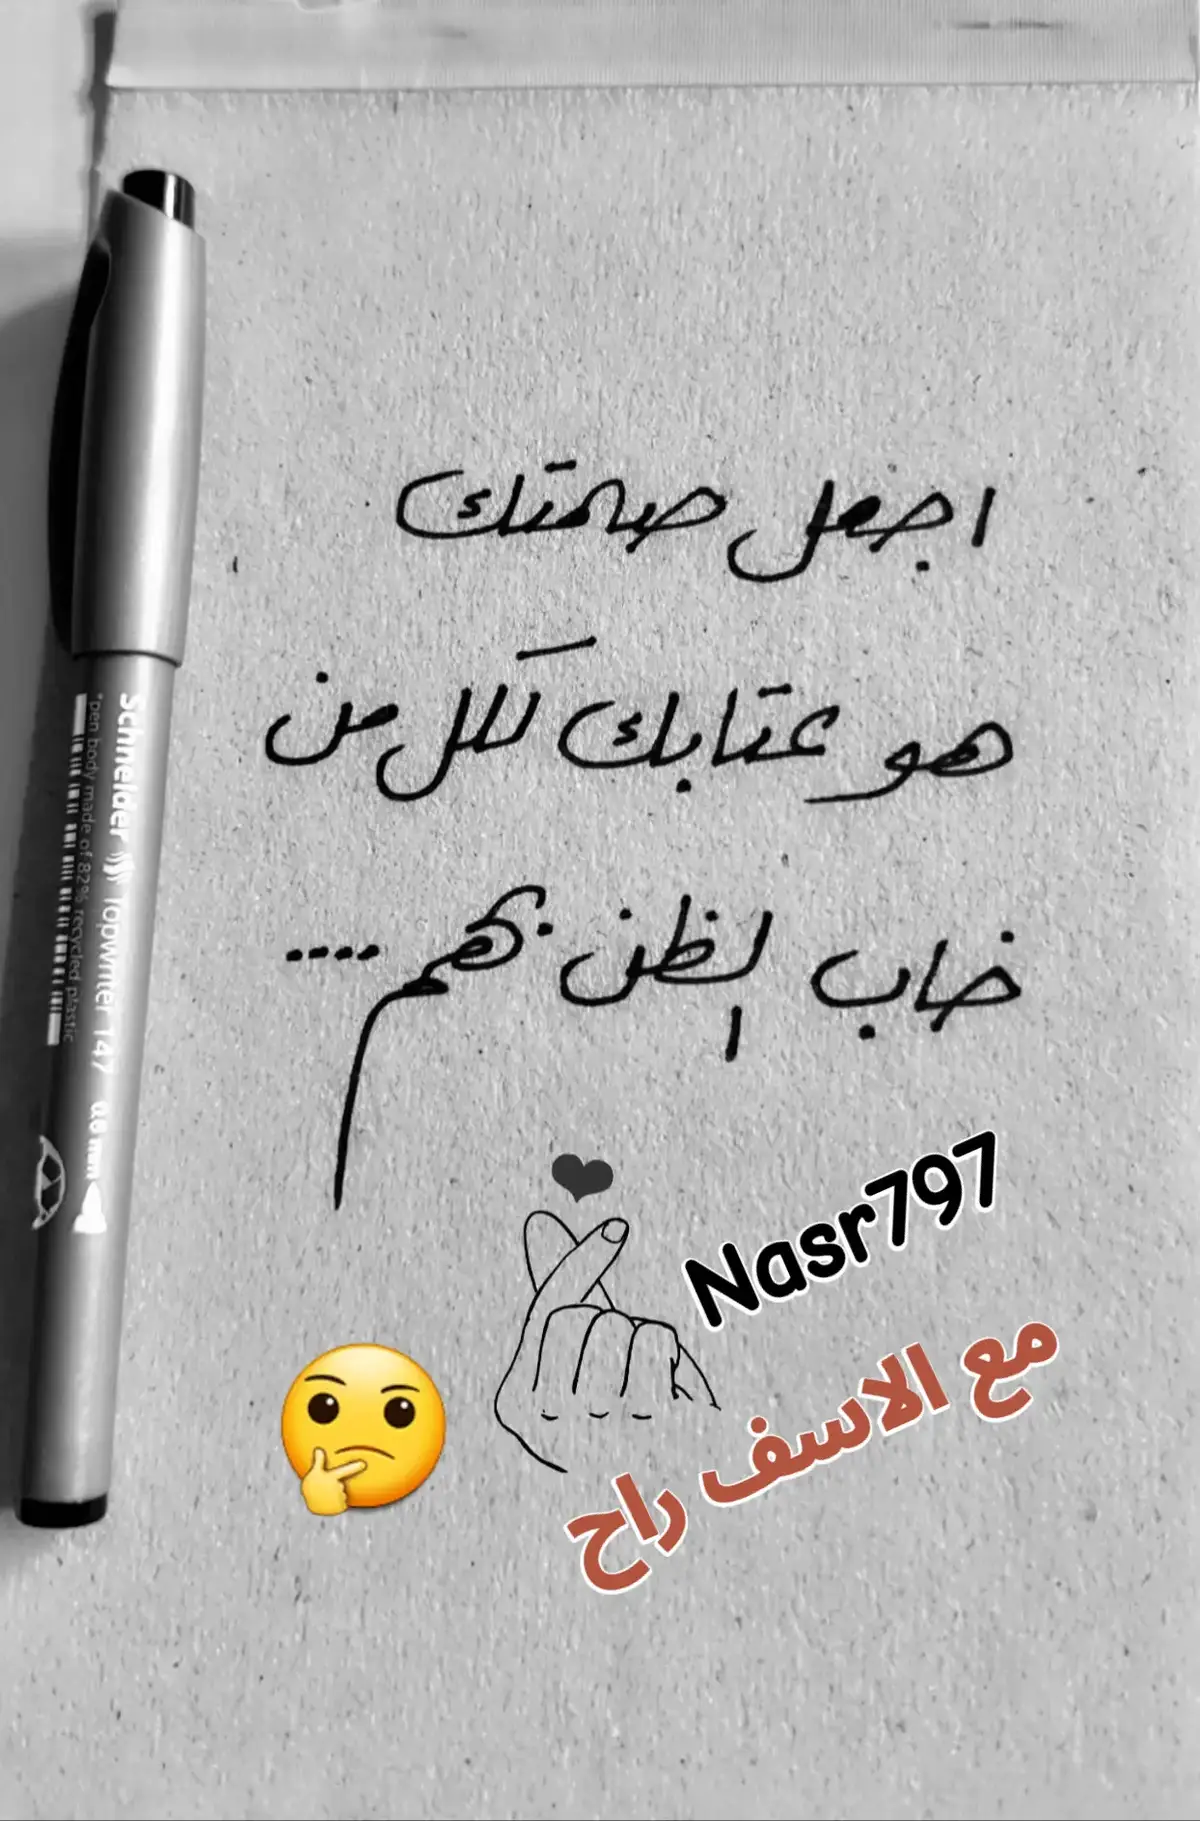 اجعل صمتك
هو عتابك لكل من
خاب الظن بهم ....
Nasr797
مع الاسف راح
Schneider Topwriter 147 0.8 mm
"pen body made of 82% recycled plastic